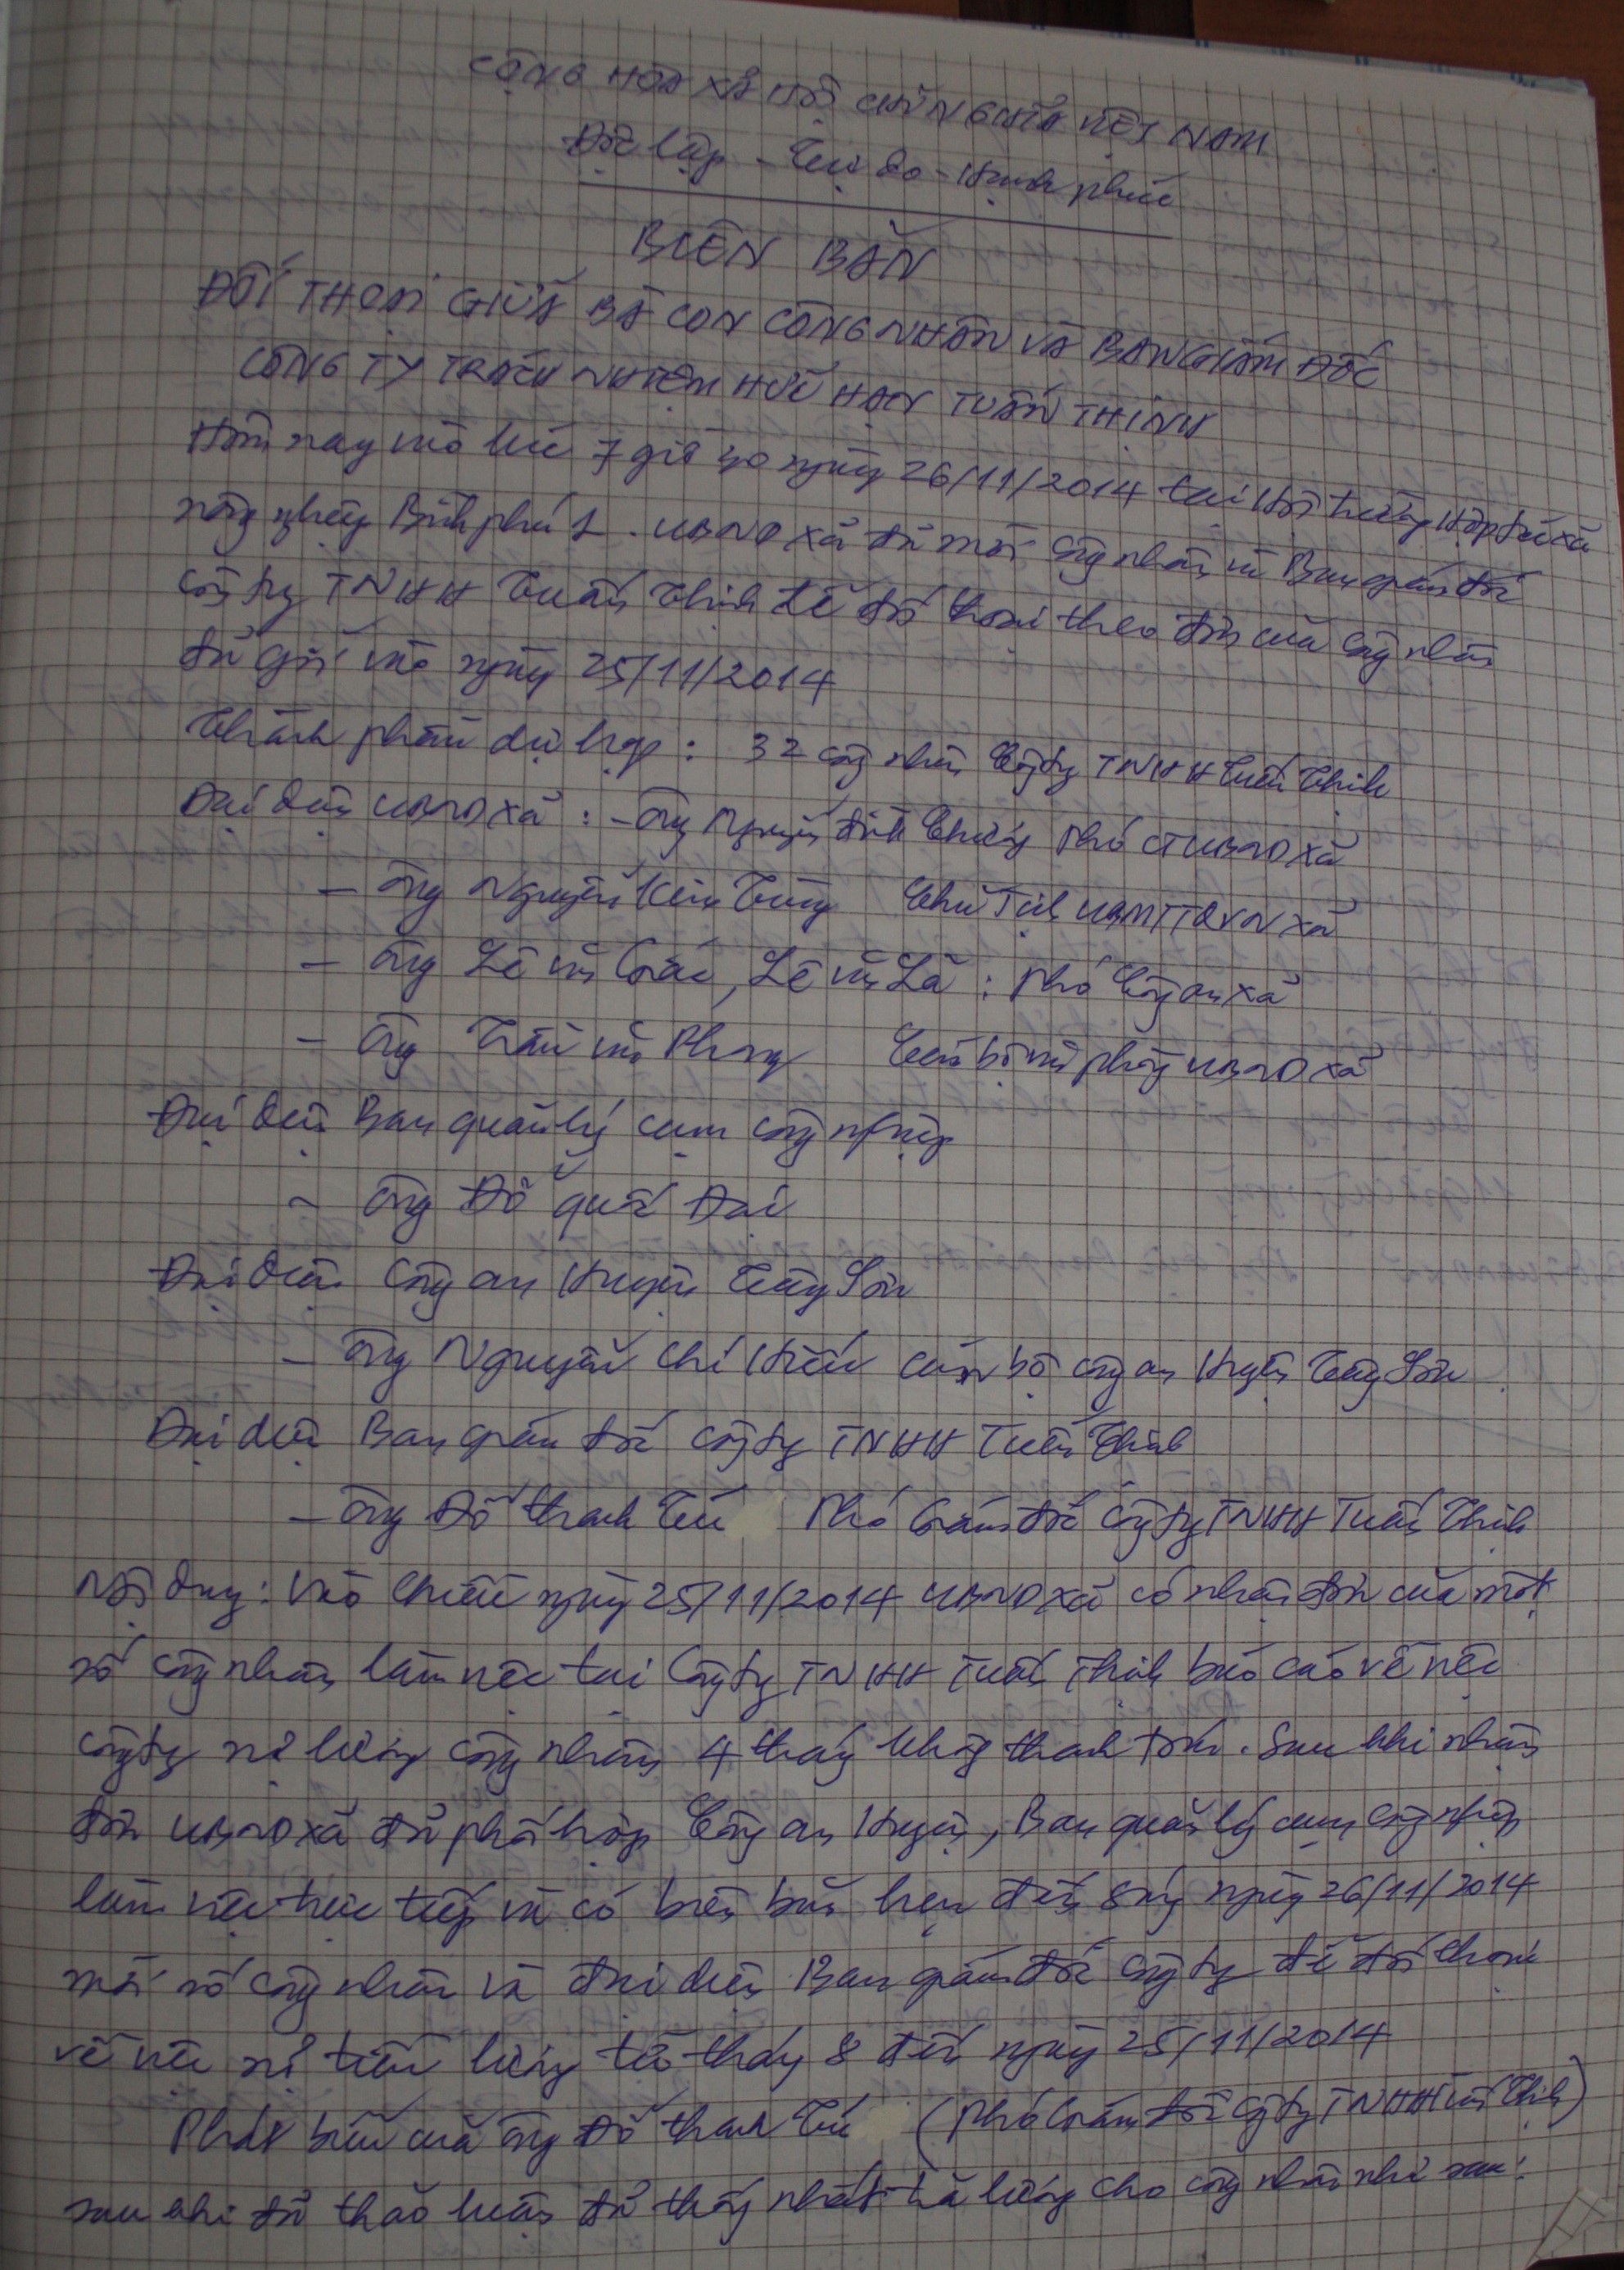 CỘNG HÒA XÃ HỘI CHỦ NGHĨA VIỆT NAM
Độc lập - Tự do - Hạnh phúc
BIÊN BẢN
ĐỐI THOẠI GIỮA BÀ CON CÔNG NHÂN VÀ BAN GIÁM ĐỐC
CÔNG TY TRÁCH NHIỆM HỮU HẠN TUẤN THỊNH
Hôm nay vào lúc 7 giờ 30 ngày 26/11/2014 tại Hội trường Hợp tác xã
nông nghiệp Bình phú 1. UBND xã đã mời công nhân và Ban giám đốc
công ty TNHH Tuấn Thịnh để đối thoại theo đơn của công nhân
đã gởi vào ngày 25/11/2014
Thành phần dự họp: 32 công nhân Công ty TNHH Tuấn Thịnh
Đại diện UBND xã: - ông Nguyễn đình Chương Phó CT UBND xã
- ông Nguyễn Kim Tùng Chủ Tịch UBMTTQVN xã
- ông Lê văn Giác, Lê văn Lã: Phó Công an xã
- ông Trần văn Phong Cán bộ văn phòng UBND xã
Đại diện Ban quản lý cụm công nghiệp
- ông Đỗ quốc Đại
Đại diện công an Huyện Tây Sơn
- ông Nguyễn Chí Hiếu cán bộ công an Huyện Tây Sơn
Đại diện Ban giám đốc công ty TNHH Tuấn Thịnh
- ông Đỗ thanh Tú Phó Giám đốc công ty TNHH Tuấn Thịnh
Nội dung: Vào chiều ngày 25/11/2014 UBND xã có nhận đơn của một
số công nhân làm việc tại Công ty TNHH Tuấn Thịnh báo cáo về việc
công ty nợ lương công nhân 4 tháng không thanh toán. Sau khi nhận
đơn UBND xã đã phối hợp Công an Huyện, Ban quản lý cụm công nghiệp
làm việc trực tiếp và có biên bản hẹn đến sáng ngày 26/11/2014
mời số công nhân và đại diện Ban giám đốc công ty để đối thoại
về việc nợ tiền lương từ tháng 8 đến ngày 25/11/2014
Phát biểu của ông Đỗ thanh Tú (Phó Giám đốc Công ty TNHH Tuấn Thịnh)
sau khi đã thảo luận đã thống nhất trả lương cho công nhân như sau: